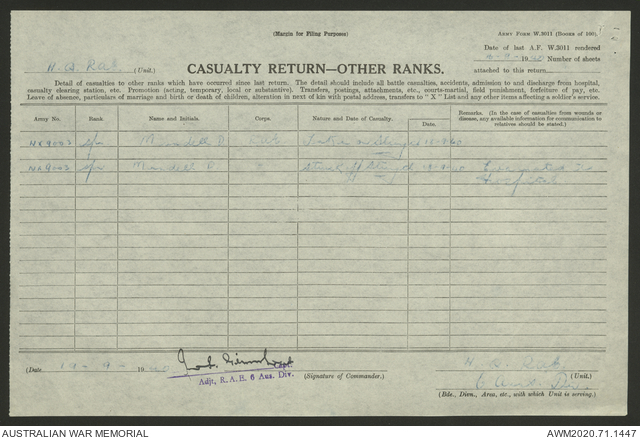 (Margin for Filing Purposes)
ARMY FORM W.3011 (BOOKS OF 100).
Date of last A.F. W.3011 rendered
H.Q. RAE (Unit.)
1940 Number of sheets
attached to this return
CASUALTY RETURN—OTHER RANKS.
Detail of casualties to other ranks which have occurred since last return. The detail should include all battle casualties, accidents, admission to and discharge from hospital,
casualty clearing station, etc. Promotion (acting, temporary, local or substantive). Transfers, postings, attachments, etc., courts-martial, field punishment, forfeiture of pay, etc.
Leave of absence, particulars of marriage and birth or death of children, alteration in next of kin with postal address, transfers to "X" List and any other items affecting a soldier's service.
Army No. Rank. Name and Initials. Corps. Nature and Date of Casualty. Date. Remarks. (In the case of casualties from wounds or
disease, any available information for communication to
relatives should be stated.)
NX9003 Spr
NX9003 Spr Struck off Evacuated to
Hospital
(Date 19-9-1940 Capt. (Signature of Commander.) H.Q. RAE (Unit.)
Adjt, R.A.E. 6 Aus. Div. 6 Aust. Div
(Bde., Divn., Area, etc., with which Unit is serving.)
AUSTRALIAN WAR MEMORIAL AWM2020.71.1447